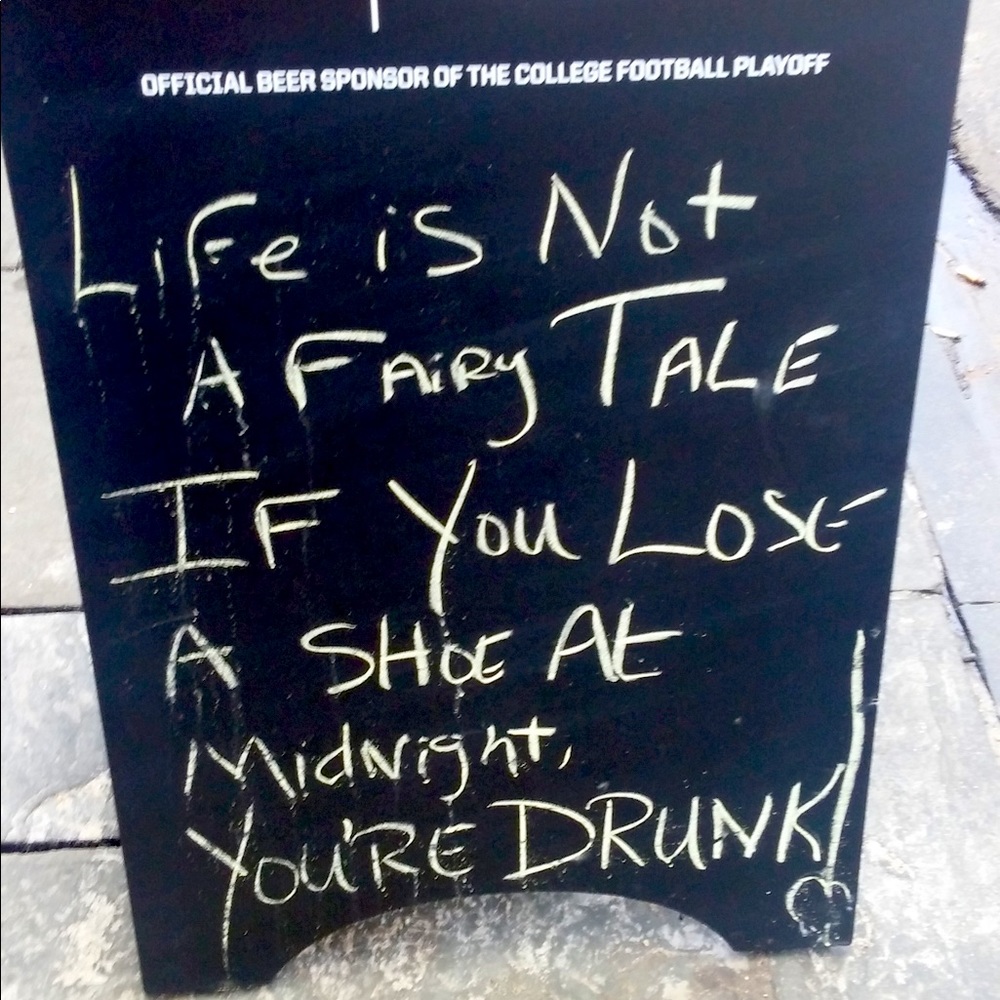 OFFICIAL BEER SPONSOR OF THE COLLEGE FOOTBALL PLAYOFF
LiFe iS Not
A FAiRy TALE
IF You LOSE
A SHOE At
MidNight,
YOU'RE DRUNK!